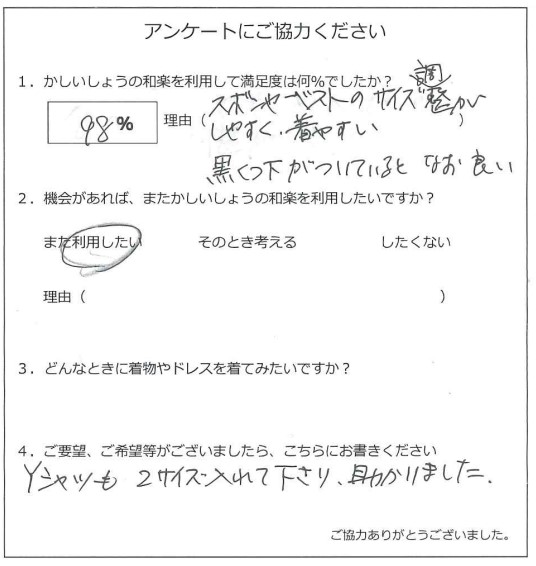 アンケートにご協力ください
1．かしいしょうの和楽を利用して満足度は何％でしたか？
98％ 理由（スボンやベストのサイズ調整が
しやすく、着やすい ）
黒くつ下がついているとなお良い
2．機会があれば、またかしいしょうの和楽を利用したいですか？
また利用したい そのとき考える したくない
理由（ ）
3．どんなときに着物やドレスを着てみたいですか？
4．ご要望、ご希望等がございましたら、こちらにお書きください
Yシャツも2サイズ入れて下さり、助かりました.
ご協力ありがとうございました。